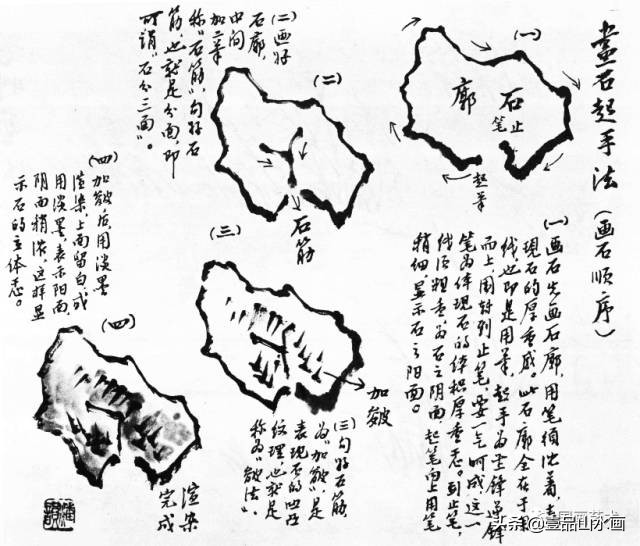 畫石起手法(画石顺序)
(一)
石廓
止笔
起笔
(一)画石先画石廓,用笔须沈着,表
现石的厚重感,此石廓全在于
线也即是用笔,起手为 锋逆锋
而上,圈 到止笔,要一气呵成,这一
笔为体现石的体积厚重 。到止笔,
线须粗重为石之阴面,起笔 上用笔
稍细,显示石之阳面。
(二)画好
石廓,
中间
加二笔
称“石筋”,勾好石
筋也就是分面,即
可谓“石分三面”。
(二)
石筋
(三)
加皴
(三)勾好石筋
为“加皴”,是
表现石的凹凸
纹理,也就是
称为“皴法”。
(四)加皴后用淡墨
渲染,上面留白或
用淡墨,表示阳面,
阴面稍浓,这样显
示石的立体感。
(四)
渲染
完成
头条@壹品山水画